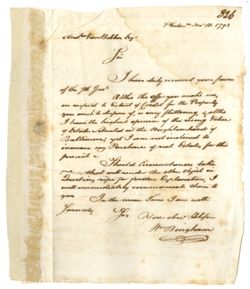 326
Philada. Nov. 12. 1792
Abrm. Van Bibber Esqr.
Sir
I have duly received your favor
of the 7th Inst.
Altho the offer you make me,
in respect to Extent of Credit for the Property
you wish to dispose of, is very flattering, & altho
I have the highest opinion of the rising Value
of Estates situated in the Neighbourhood of
Baltimore, yet I am not inclined to
increase my Purchases of real Estate for the
present.
Should Circumstances
that will render the other Object in
Question, ripe for further Explanation, I
will immediately communicate them to
you
In the mean Time I am with
Sincerity Sir Your obed. Hble Ser
Wm Bingham